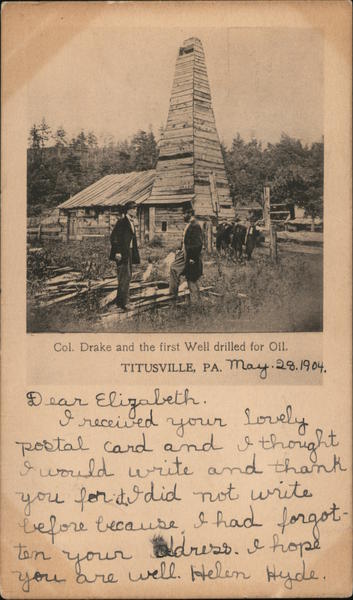 Col. Drake and the first Well drilled for Oil.
TITUSVILLE, PA. May. 28. 1904.
Dear Elizabeth.
I received your lovely
postal card and I thought
I would write and thank
you for it, I did not write
before because, I had forgot-
ten your adress. I hope
you are well. Helen Hyde.